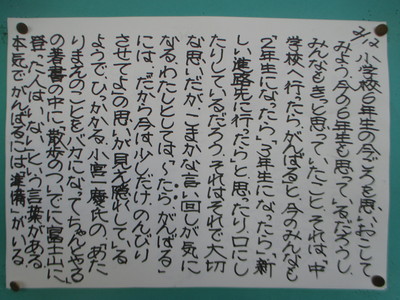 3/12 小学校6年生の今ごろを思いおこして
みよう。今の6年生も思っているだろうし、
みんなもきっと思っていたこと、それは、「中
学校へ行ったらがんばる」と、今のみんなも
「2年生になったら」「3年生になったら」「新
しい進路先に行ったら」と思ったり、口にし
たりしているだろう。それはそれで大切
な思いだが、こまかな言い回しが気に
なるわたしとしては「〜たらがんばる」
には、「だから今は少しだけのんびり
させてよ」の思いが見え隠れしている
ようで、ひっかかる。小宮一慶氏の「あた
りまえのことをバカになってちゃんとやる」
の著書の中に「散歩のついでに富士山に
登った人はいない」という言葉がある
本気でがんばるには「準備」がいる。